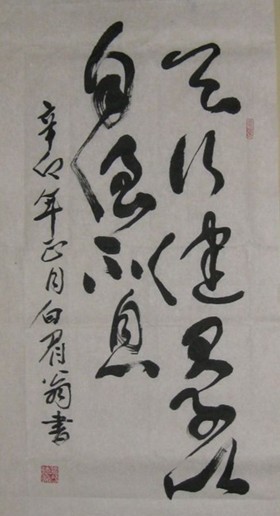 天行健君子以
自强不息
辛卯年正月白眉翁书